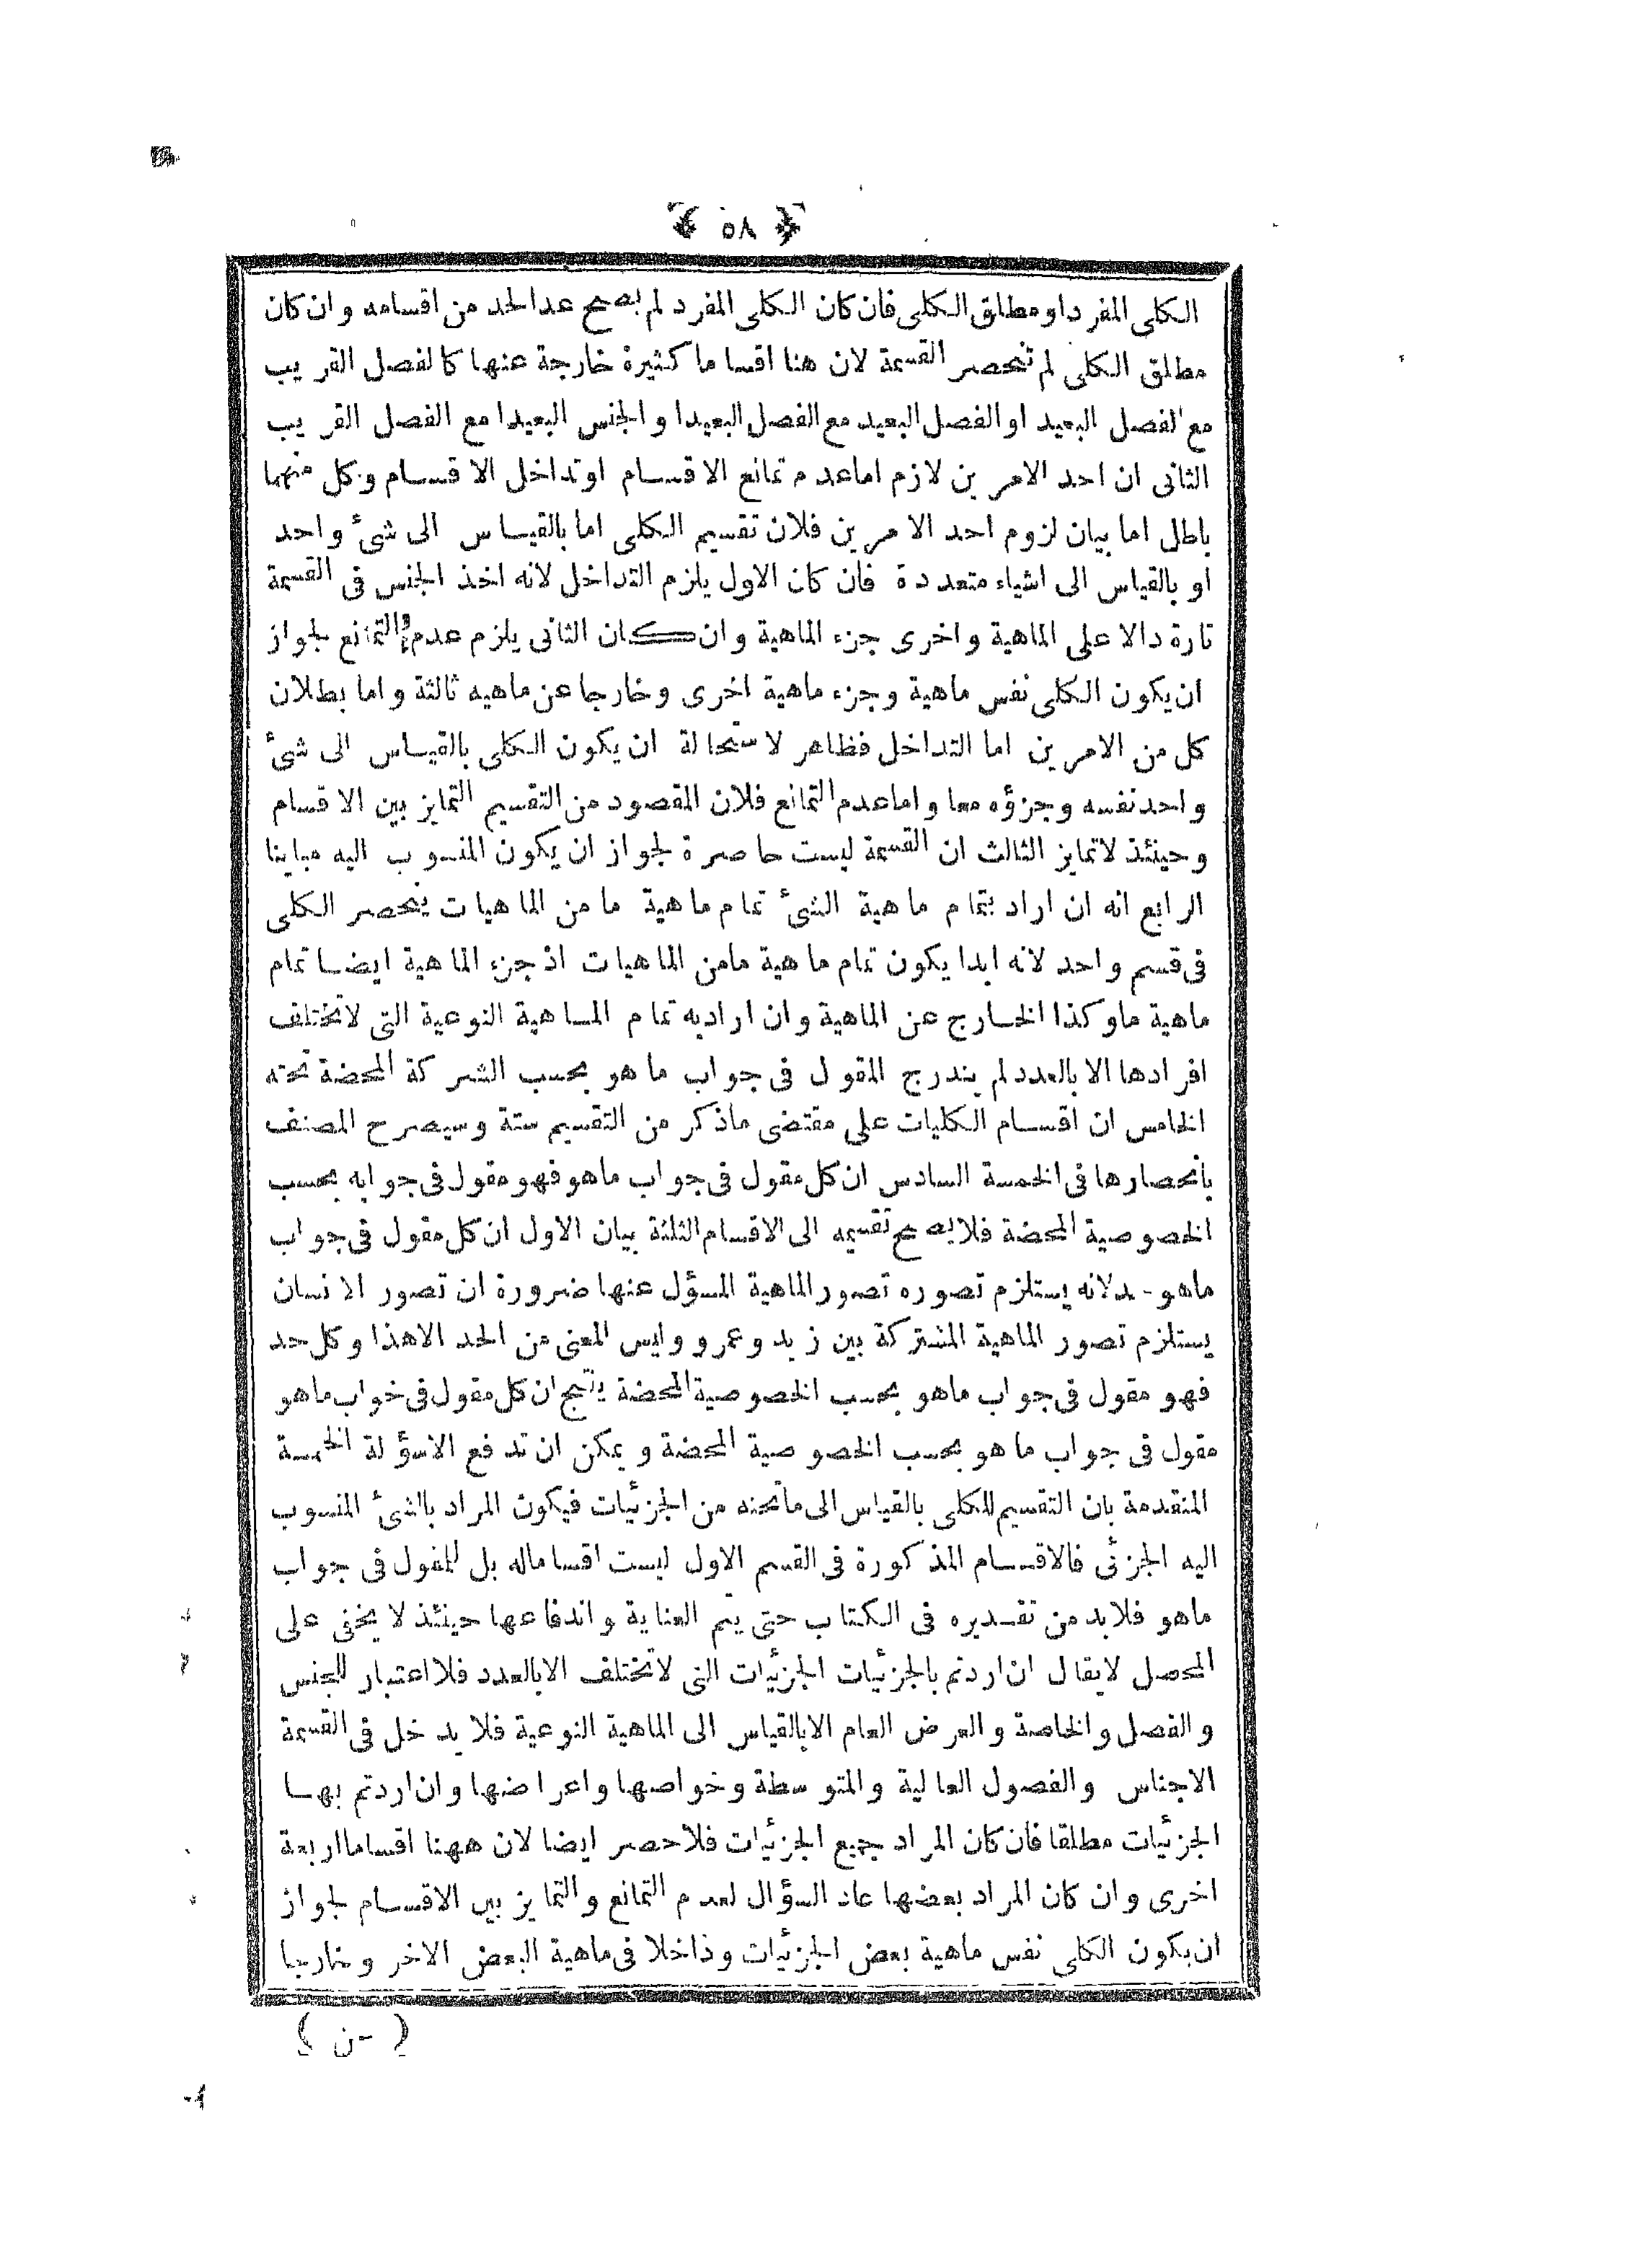 ٥٨
الكلى المفرد او مطلق الكلى فان كان الكلى المفرد لم يصح عد الحد من اقسامه وان كان
مطلق الكلى لم تنحصر القسمة لان هنا اقساما كثيرة خارجة عنها كالفصل القريب
مع الفصل البعيد او الفصل البعيد مع الفصل البعيد او الجنس البعيد امع الفصل القريب
الثانى ان احد الامرين لازم اما عدم تمانع الاقسام او تداخل الاقسام وكل منهما
باطل اما بيان لزوم احد الامرين فلان تقسيم الكلى اما بالقياس الى شئ واحد
او بالقياس الى اشياء متعددة فان كان الاول يلزم التداخل لانه اخذ الجنس فى القسمة
تارة دالا على الماهية واخرى جزء الماهية وان كان الثانى يلزم عدم التمانع لجواز
ان يكون الكلى نفس ماهية وجزء ماهية اخرى وخارجا عن ماهيه ثالثة واما بطلان
كل من الامرين اما التداخل فظاهر لاستحالة ان يكون الكلى بالقياس الى شئ
واحد نفسه وجزؤه معا واما عدم التمانع فلان المقصود من التقسيم التمايز بين الاقسام
وحينئذ لاتمايز الثالث ان القسمة ليست حاصرة لجواز ان يكون المنسوب اليه مباينا
الرابع انه ان اراد بتمام ماهية الشئ تمام ماهية ما من الماهيات ينحصر الكلى
فى قسم واحد لانه ابدا يكون تمام ماهية مامن الماهيات اذ جزء الماهية ايضا تمام
ماهية ماوكذا الخارج عن الماهية وان اراد به تمام الماهية النوعية التى لاتختلف
افرادها الا بالعدد لم يندرج المقول فى جواب ما هو بحسب الشركة المحضة تحته
الخامس ان اقسام الكليات على مقتضى ماذكر من التقسيم ستة وسيصرح المصنف
بانحصارها فى الخمسة السادس ان كل مقول فى جواب ماهو فهو مقول فى جوابه بحسب
الخصوصية المحضة فلا يصح تقسيمه الى الاقسام الثلثة بيان الاول ان كل مقول فى جواب
ماهو حد لانه يستلزم تصوره تصور الماهية المسؤل عنها ضرورة ان تصور الانسان
يستلزم تصور الماهية المشتركة بين زيد وعمرو وليس المعنى من الحد الاهذا وكل حد
فهو مقول فى جواب ماهو بحسب الخصوصية المحضة ينتج ان كل مقول فى خواب ماهو
مقول فى جواب ما هو بحسب الخصوصية المحضة ويمكن ان تدفع الاسؤلة الخمسة
المتقدمة بان التقسيم للكلى بالقياس الى ماتحته من الجزئيات فيكون المراد بالشئ المنسوب
اليه الجزئى فالاقسام المذكورة فى القسم الاول ليست اقساماله بل للمقول فى جواب
ماهو فلابد من تقديره فى الكتاب حتى يتم العناية واندفاعها حينئذ لا يخفى على
المحصل لايقال ان اردتم بالجزئيات الجزئيات التى لاتختلف الابالعدد فلا اعتبار للجنس
والفصل والخاصة والعرض العام الابالقياس الى الماهية النوعية فلا يدخل فى القسمة
الاجناس والفصول العالية والمتوسطة وخواصها واعراضها وان اردتم بها
الجزئيات مطلقا فان كان المراد جميع الجزئيات فلا حصر ايضا لان ههنا اقساما اربعة
اخرى وان كان المراد بعضها عاد السؤال لعدم التمانع والتمايز بين الاقسام لجواز
ان يكون الكلى نفس ماهية بعض الجزئيات وداخلا فى ماهية البعض الاخر وخارجا